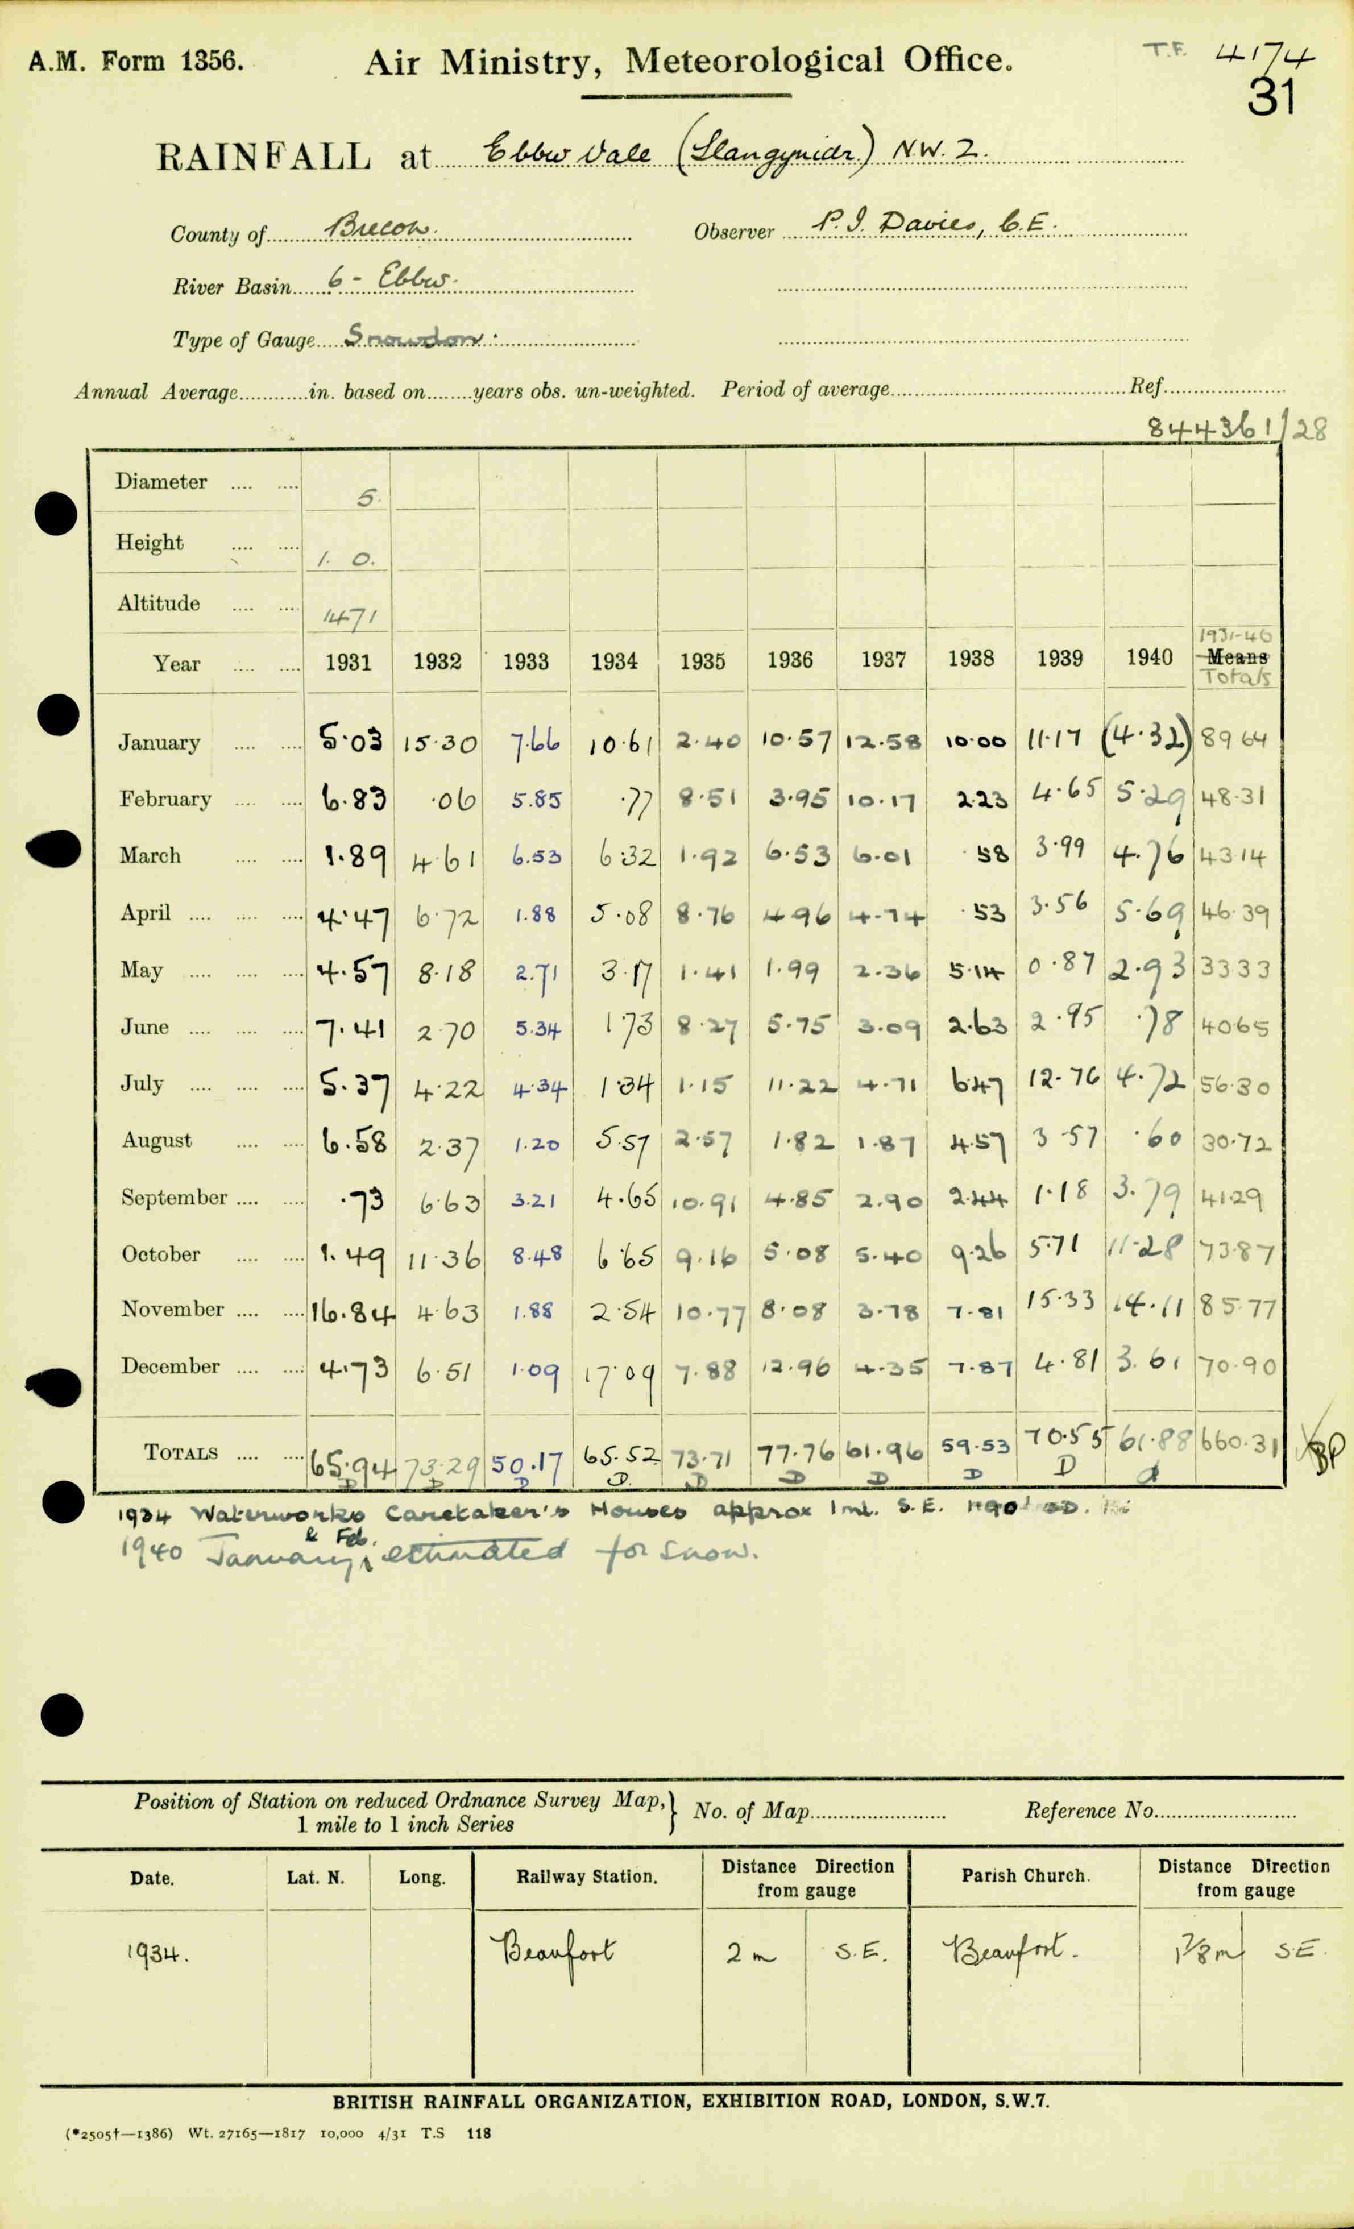 A.M. Form 1356.
Air Ministry, Meteorological Office.
T.F. 4174
31
RAINFALL at Ebbw Vale (Llangynidr) N.W. 2.
County of Brecon. Observer P. I. Davies, C.E.
River Basin 6 - Ebbw.
Type of Gauge Snowdon.
Annual Average in. based on years obs. un-weighted. Period of average Ref.
844361/28
Diameter 5.
Height 1. 0.
Altitude 1471
1931-40
Year 1931 1932 1933 1934 1935 1936 1937 1938 1939 1940 Means
Totals
January 5.03 15.30 7.66 10.61 2.40 10.57 12.58 10.00 11.17 (4.32) 89 64
February 6.83 .06 5.85 .77 8.51 3.95 10.17 2.23 4.65 5.29 48.31
March 1.89 4.61 6.53 6.32 1.92 6.53 6.01 .58 3.99 4.76 43 14
April 4.47 6.72 1.88 5.08 8.76 4.96 4.74 .53 3.56 5.69 46.39
May 4.57 8.18 2.71 3.17 1.41 1.99 2.36 5.14 0.87 2.93 33 33
June 7.41 2.70 5.34 1.73 8.27 5.75 3.09 2.63 2.95 .78 40 65
July 5.37 4.22 4.34 1.34 1.15 11.22 4.71 6.47 12.76 4.72 56.30
August 6.58 2.37 1.20 5.57 2.57 1.82 1.87 4.57 3.57 .60 30.72
September .73 6.63 3.21 4.65 10.91 4.85 2.90 2.44 1.18 3.79 41.29
October 1.49 11.36 8.48 6.65 9.16 5.08 5.40 9.26 5.71 11.28 73.87
November 16.84 4.63 1.88 2.54 10.77 8.08 3.78 7.81 15.33 14.11 85.77
December 4.73 6.51 1.09 17.09 7.88 12.96 4.35 7.87 4.81 3.61 70.90
TOTALS 65.94 73.29 50.17 65.52 73.71 77.76 61.96 59.53 70.55 61.88 660.31 BP
D D D D D D D D D d
1934 Waterworks Caretaker's Houses approx 1 ml. S.E.
& Feb.
1940 January estimated for snow.
Position of Station on reduced Ordnance Survey Map, No. of Map Reference No.
1 mile to 1 inch Series
Date. Lat. N. Long. Railway Station. Distance Direction from gauge Parish Church. Distance Direction from gauge
1934. Beaufort 2 m S.E. Beaufort. 1 7/8 m S.E.
BRITISH RAINFALL ORGANIZATION, EXHIBITION ROAD, LONDON, S.W.7.
(*2505†—1386) Wt. 27165—1817 10,000 4/31 T.S 118